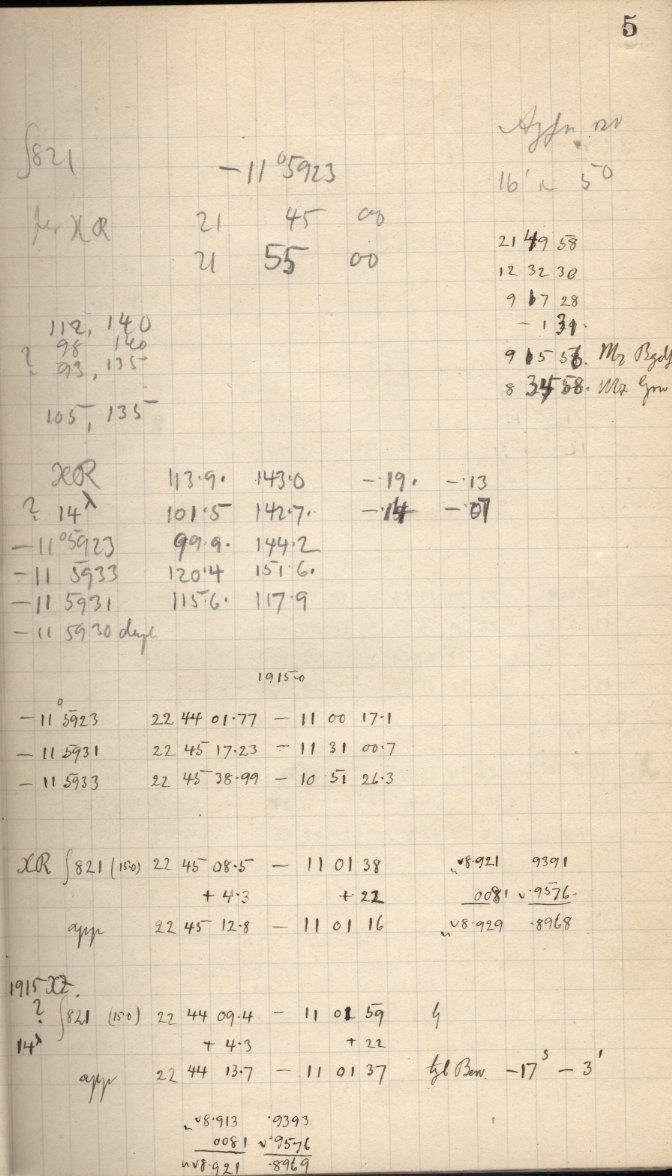 5
∫821 -11°5923
16' 5°
XR 21 45 00
21 55 00
21 49 58
12 32 30
9 17 28
- 1 31.
9 15 56. Mz
8 34 58. Mz
112, 140
? 98 140
93, 135
105, 135
XR 113.9. 143.0 -.19. -.13
? 14λ 101.5 142.7. -.14 -.07
-11°5923 99.9. 144.2
-11 5933 120.4 151.6.
-11 5931 115.6. 117.9
-11 5930 dupl
1915.0
-11°5923 22 44 01.77 - 11 00 17.1
-11 5931 22 45 17.23 - 11 31 00.7
-11 5933 22 45 38.99 - 10 51 26.3
XR ∫821 (15.0) 22 45 08.5 - 11 01 38 nv8.921 9391
+ 4.3 + 22 0081 v.9576
app 22 45 12.8 - 11 01 16 nv8.929 .8968
1915 XZ.
? ∫821 (15.0) 22 44 09.4 - 11 01 59
14λ + 4.3 + 22
app 22 44 13.7 - 11 01 37 -17s - 3'
nv8.913 .9393
0081 v.9576
nv8.921 .8969